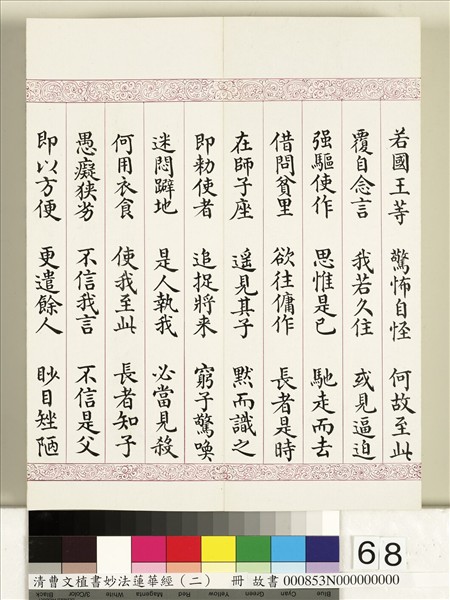 若國王等 驚怖自怪 何故至此
覆自念言 我若久住 或見逼迫
强驅使作 思惟是已 馳走而去
借問貧里 欲往傭作 長者是時
在師子座 遙見其子 默而識之
即勑使者 追捉將來 窮子驚喚
迷悶躃地 是人執我 必當見殺
何用衣食 使我至此 長者知子
愚癡狹劣 不信我言 不信是父
即以方便 更遣餘人 眇目矬陋
68
清曹文植書妙法蓮華經（二） 冊 故書 000853N000000000
Black 3/Color White Magenta Red Yellow Green Cyan Blue